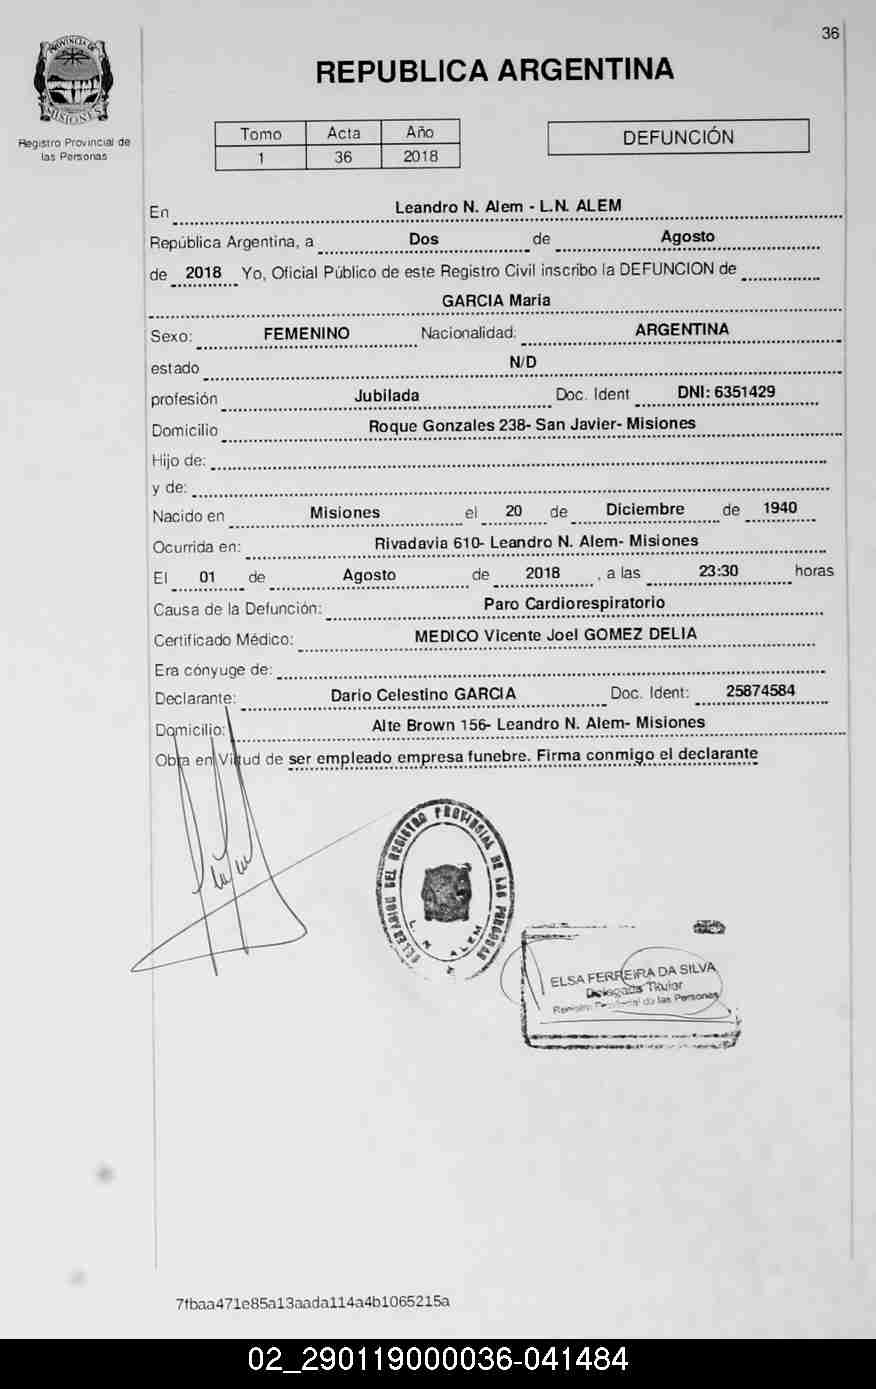 36
PROVINCIA DE
MISIONES
Registro Provincial de
las Personas
REPUBLICA ARGENTINA
Tomo Acta Año
1 36 2018
DEFUNCIÓN
En Leandro N. Alem - L.N. ALEM
República Argentina, a Dos de Agosto
de 2018 Yo, Oficial Público de este Registro Civil inscribo la DEFUNCION de
GARCIA Maria
Sexo: FEMENINO Nacionalidad: ARGENTINA
estado N/D
profesión Jubilada Doc. Ident DNI: 6351429
Domicilio Roque Gonzales 238- San Javier- Misiones
Hijo de:
y de:
Nacido en Misiones el 20 de Diciembre de 1940
Ocurrida en: Rivadavia 610- Leandro N. Alem- Misiones
El 01 de Agosto de 2018 , a las 23:30 horas
Causa de la Defunción: Paro Cardiorespiratorio
Certificado Médico: MEDICO Vicente Joel GOMEZ DELIA
Era cónyuge de:
Declarante: Dario Celestino GARCIA Doc. Ident: 25874584
Domicilio: Alte Brown 156- Leandro N. Alem- Misiones
Obra en Virtud de ser empleado empresa funebre. Firma conmigo el declarante
DELEGACION DEL REGISTRO PROVINCIAL DE LAS PERSONAS
L. N. ALEM
ELSA FERREIRA DA SILVA
Delegada Titular
Registro Provincial de las Personas
7fbaa471e85a13aada114a4b1065215a
02_290119000036-041484